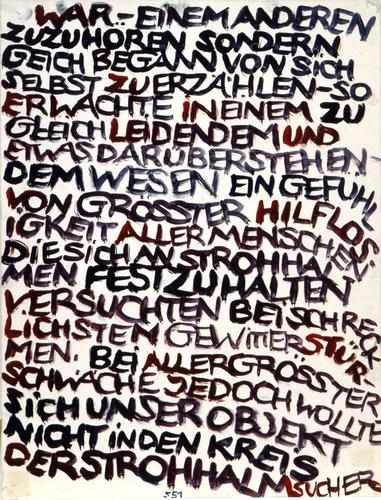 WAR.- EINEM ANDEREN
ZUZUHÖREN SONDERN
GEICH BEGANN VON SICH
SELBST ZU ERZÄHLEN - SO
ERWACHTE IN EINEM ZU
GLEICH LEIDENDEM UND
ETWAS DARÜBERSTEHEN-
DEM WESEN EIN GEFÜHL
VON GRÖSSTER HILFLOS
IGKEIT ALLER MENSCHEN
DIE SICH AN STROHHAL
MEN FESTZUHALTEN
VERSUCHTEN BEI SCHRECK
LICHSTEN GEWITTERSTÜR-
MEN. BEI ALLERGRÖSSTER
SCHWÄCHE JEDOCH WOLLTE
SICH UNSER OBJEKT
NICHT IN DEN KREIS
DER STROHHALMSUCHER
551